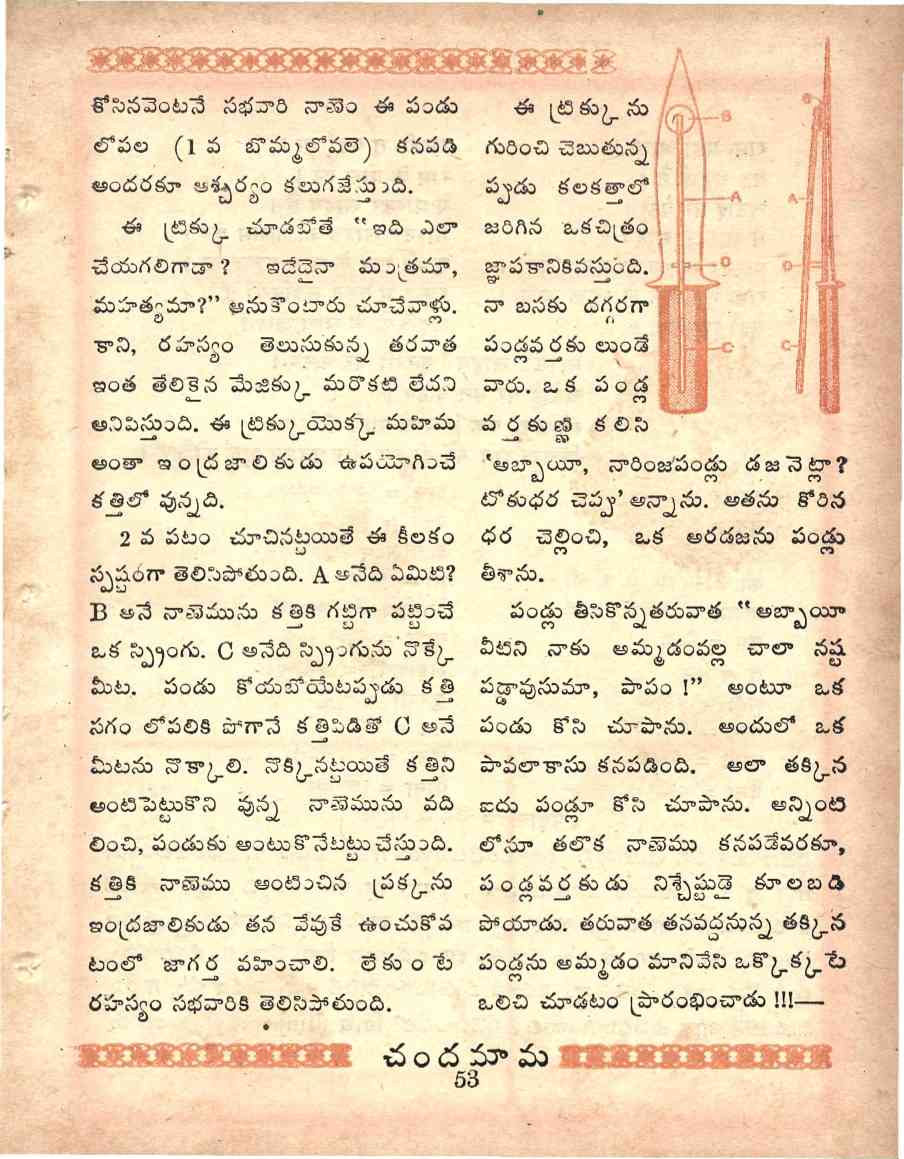 కోసినవెంటనే సభవారి నాణెం ఈ పండు
లోపల (1 వ బొమ్మలోవలె) కనపడి
అందరకూ ఆశ్చర్యం కలుగజేస్తుంది.
ఈ ట్రిక్కు చూడబోతే “ఇది ఎలా
చేయగలిగాడా? ఇదేదైనా మంత్రమా,
మహత్యమా?” అనుకొంటారు చూచేవాళ్లు.
కాని, రహస్యం తెలుసుకున్న తరవాత
ఇంత తేలికైన మేజిక్కు మరొకటి లేదని
అనిపిస్తుంది. ఈ ట్రిక్కుయొక్క మహిమ
అంతా ఇంద్రజాలికుడు ఉపయోగించే
కత్తిలో వున్నది.
2 వ పటం చూచినట్టయితే ఈ కీలకం
స్పష్టంగా తెలిసిపోతుంది. A అనేది ఏమిటి?
B అనే నాణెమును కత్తికి గట్టిగా పట్టించే
ఒక స్ప్రింగు. C అనేది స్ప్రింగును నొక్కే
మీట. పండు కోయబోయేటప్పుడు కత్తి
సగం లోపలికి పోగానే కత్తిపిడితో C అనే
మీటను నొక్కాలి. నొక్కినట్టయితే కత్తిని
అంటిపెట్టుకొని వున్న నాణెమును వది
లించి, పండుకు అంటుకొనేటట్టు చేస్తుంది.
కత్తికి నాణెము అంటించిన ప్రక్కను
ఇంద్రజాలికుడు తన వేవుకే ఉంచుకోవ
టంలో జాగర్త వహించాలి. లేకుంటే
రహస్యం సభవారికి తెలిసిపోతుంది.
ఈ ట్రిక్కును
గురించి చెబుతున్న
ప్పుడు కలకత్తాలో
జరిగిన ఒకచిత్రం
జ్ఞాపకానికివస్తుంది.
నా బసకు దగ్గరగా
పండ్లవర్తకు లుండే
వారు. ఒక పండ్ల
వర్తకుణ్ణి కలిసి
‘అబ్బాయీ, నారింజపండ్లు డజనెట్లా?
టోకుధర చెప్పు’ అన్నాను. అతను కోరిన
ధర చెల్లించి, ఒక అరడజను పండ్లు
తీశాను.
పండ్లు తీసికొన్నతరువాత “అబ్బాయీ
వీటిని నాకు అమ్మడంవల్ల చాలా నష్ట
పడ్డావుసుమా, పాపం!” అంటూ ఒక
పండు కోసి చూపాను. అందులో ఒక
పావలాకాసు కనపడింది. అలా తక్కిన
ఐదు పండ్లూ కోసి చూపాను. అన్నింటి
లోనూ తలొక నాణెము కనపడేవరకూ,
పండ్లవర్తకుడు నిశ్చేష్టుడై కూలబడి
పోయాడు. తరువాత తనవద్దనున్న తక్కిన
పండ్లను అమ్మడం మానివేసి ఒక్కొక్కటే
ఒలిచి చూడటం ప్రారంభించాడు !!!—
B
A
D
C
B
A
D
C
చందమామ
53